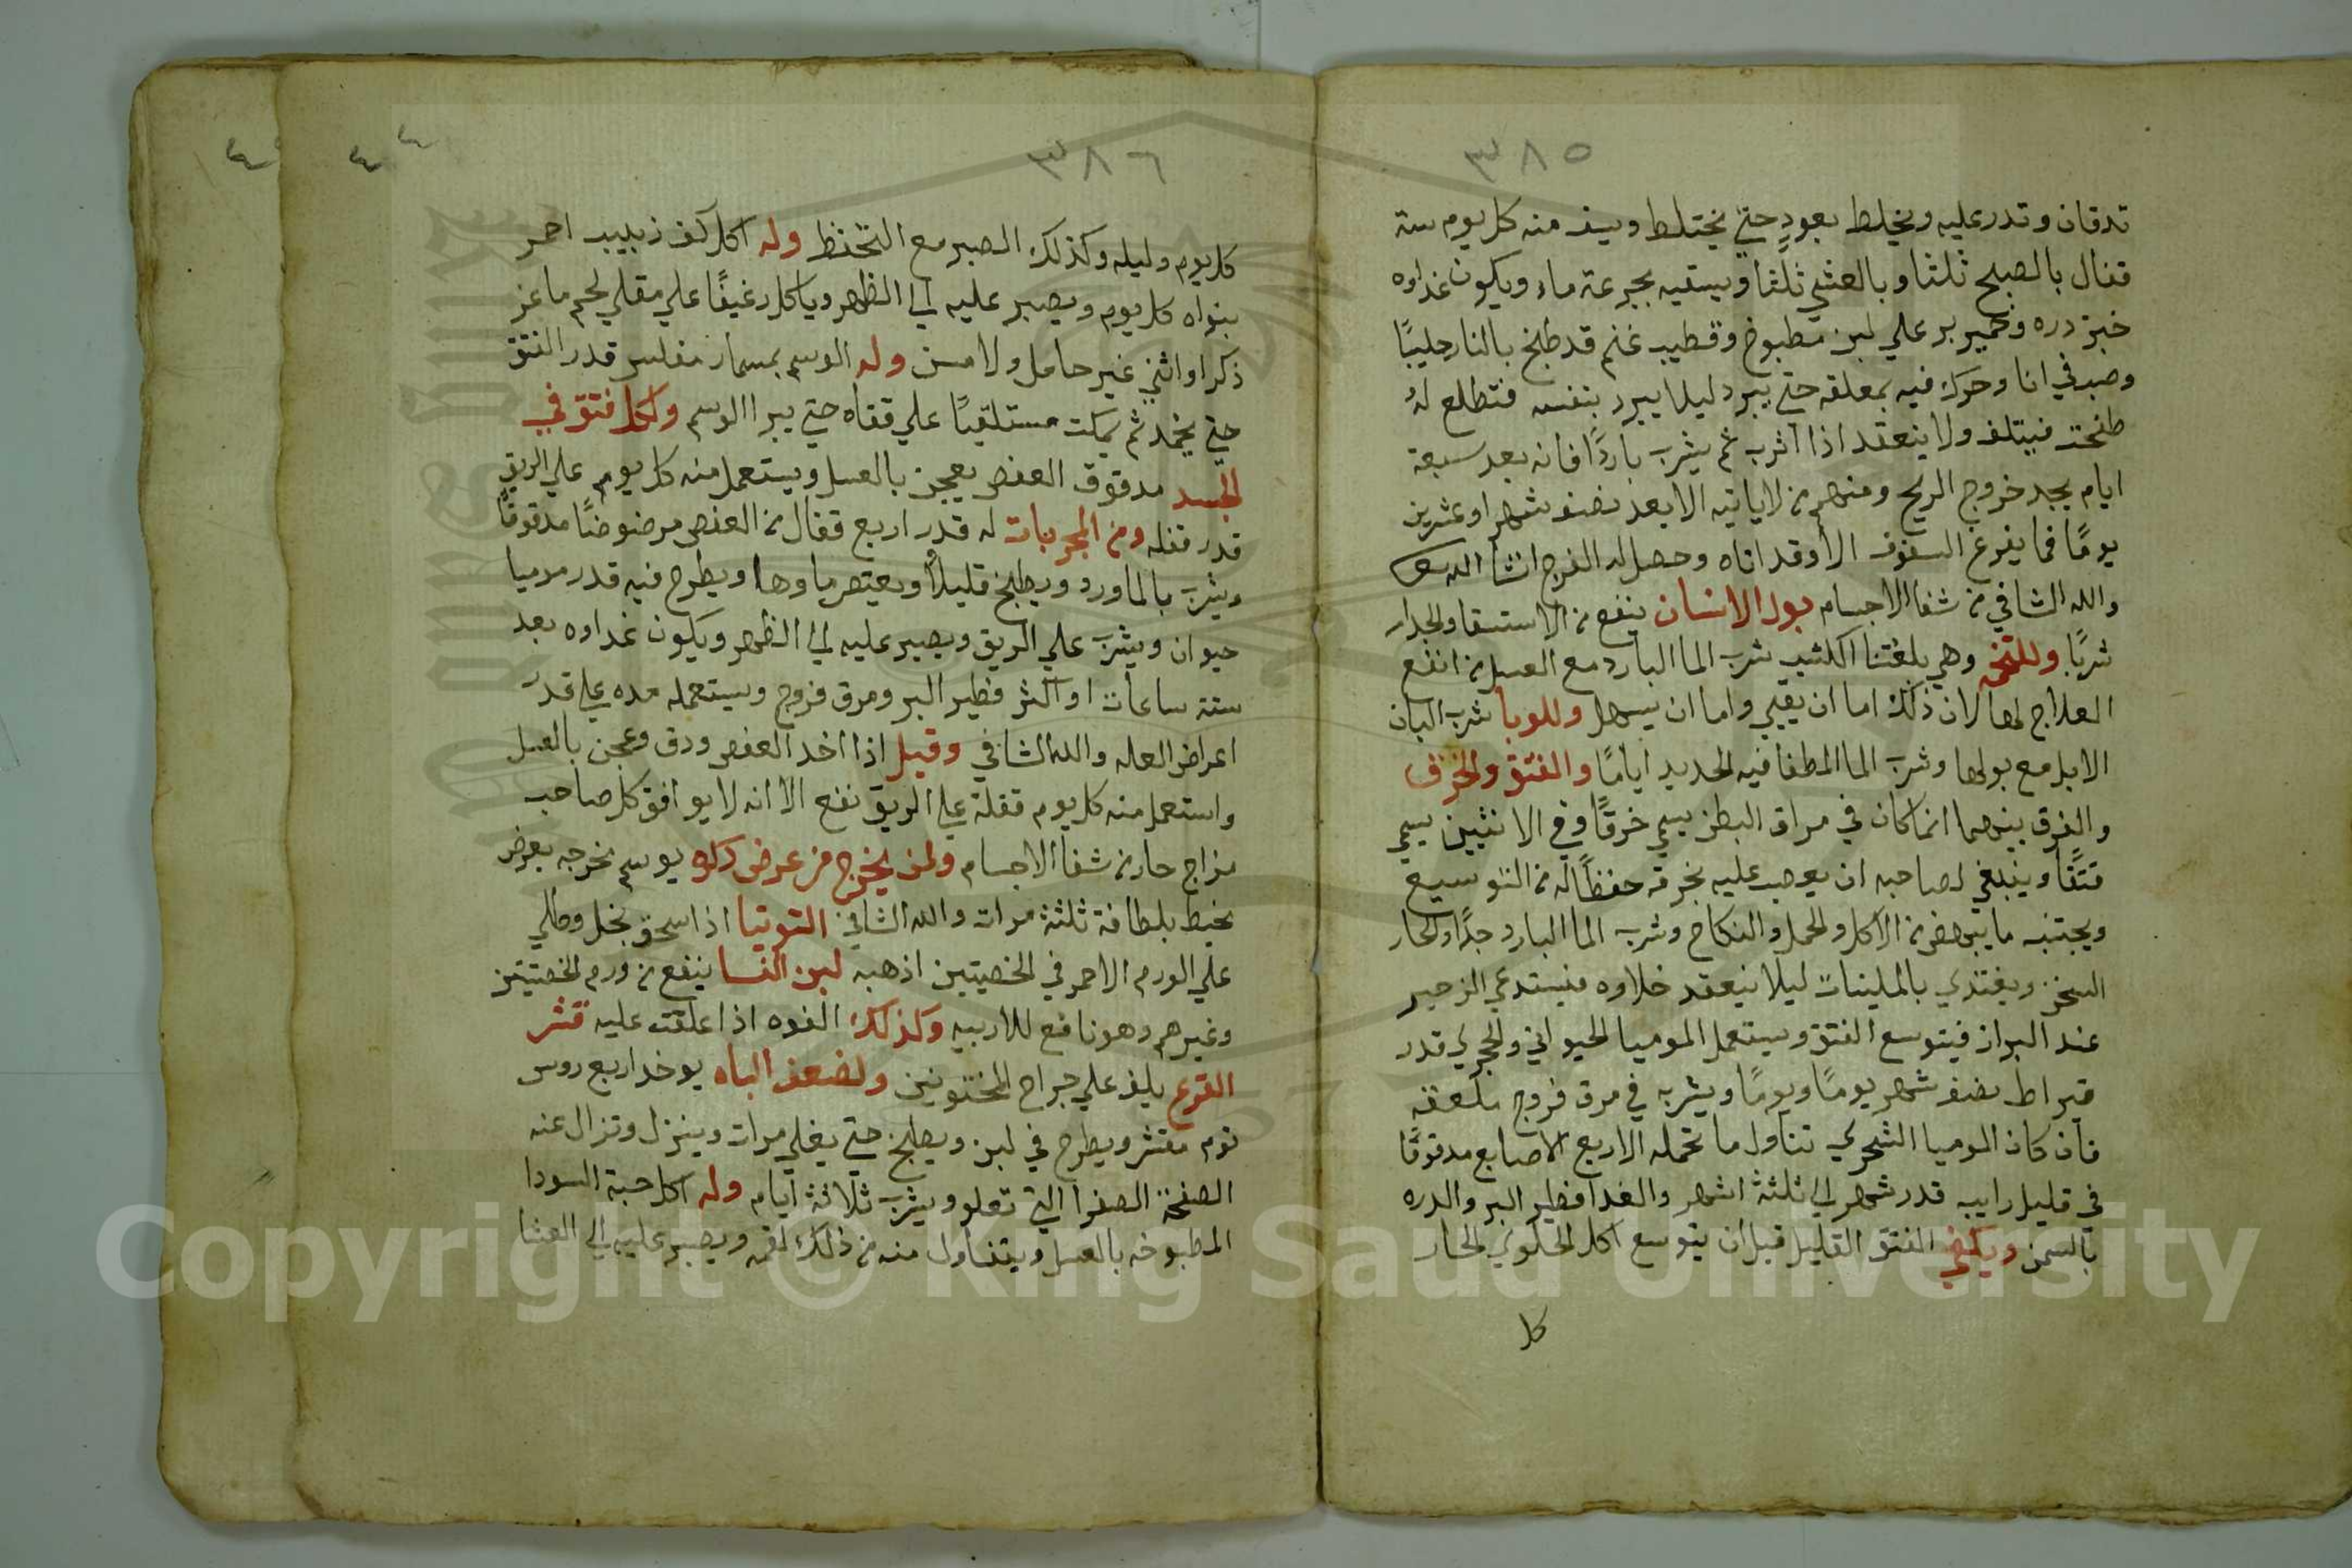 ٣٨٥
تدقان وتدر عليه ويخلط بعود حتي يختلط ويسف منه كل يوم ستة
قفال بالصبح ثلثا وبالعشي ثلثا ويسقيه بجرعة ماء ويكون غداوه
خبز دره وخمير بر علي لبن مطبوخ وقطيب غنم قد طبخ بالنار حليبًا
وصب في انا وحرك فيه بمعلقه حتي يبرد ليلا يبرد بنفسه فتطلع له
طنحت فيتلف ولا ينعقد اذا اثرب ثم يشرب باردًا فانه بعد سبعة
ايام يجد خروج الريح ومنهم من لا ياتيه الا بعد نصف شهر او عشرين
يومًا فما يفرغ السفوف الا وقد اتاه وحصل له الفرج انشا الله
والله الشافي من شفا الاجسام بول الانسان ينفع من الاستسقا والجدار
شربًا وللتخمه وهي بلغتنا الكثيب شرب الما البارد مع العسل من انفع
العلاج لها لان ذلك اما ان يقيي واما ان يسهل وللوبا شرب البان
الابل مع بولها وشرب الما المطفا فيه الحديد ايامًا والفتق والخرق
والفرق بينهما انما كان في مراق البطن يسمي خرقًا وفي الانثيين يسمي
فتقًا وينبغي لصاحبه ان يعصب عليه بخرقه حفظًا له من التوسيع
ويجتنب ما ينهض من الاكل والحمل والنكاح وشرب الما البارد جدًا والحار
السخن ويغتذي بالملينات ليلا ينعقد خلاوه فيستدعي الزحير
عند البراز فيتوسع الفتق ويستعمل الموميا الحيواني والحجري قدر
قيراط نصف شهر يومًا ويومًا ويشربه في مرق فروج بلعقه
فان كان الموميا الشحري تناول ما تحمله الاربع الاصابع مدقوقًا
في قليل رايبه قدر شهر الي ثلثة اشهر والغدا فطير البر والدره
بالسمن ويكفي الفتق القليل قبل ان يتوسع اكل الحلوي الحار
كل
٣٨٦
كل يوم وليله وكذلك الصبر مع التحفظ وله اكل كف زبيب احمر
بنواه كل يوم ويصبر عليه الي الظهر وياكل رغيفًا علي مقلي لحم ماعز
ذكر او انثي غير حامل ولا مسن وله الوسم بمسمار مفلس قدر الفتق
حتي يخمد ثم يمكث مستلقيًا علي قفاه حتي يبرا الوسم ولكل فتق في
الجسد مدقوق العفص يعجن بالعسل ويستعمل منه كل يوم علي الريق
قدر قفله ومن المجربات له قدر اربع قفال من العفص مرضوضًا مدقوقًا
ويشرب بالماورد ويطبخ قليلا ويعتصر ماوها ويطرح فيه قدر موميا
حيوان ويشرب علي الريق ويصبر عليه الي الظهر ويكون غداوه بعد
ستة ساعات او اكثر فطير البر ومرق فروج ويستعمله مده علي قدر
اعراض العله والله الشافي وقيل اذا اخد العفص ودق وعجن بالعسل
واستعمل منه كل يوم قفلة علي الريق نفع الا انه لا يوافق كل صاحب
مزاج حار من شفا الاجسام ولمن يخرج من عرض ركوه يوسم مخرجه بعرض
بخيط بلطافة ثلثة مرات والله الشافي التوتيا اذا سحق بخل وطلي
علي الورم الاحمر في الخصيتين اذهبه لبن النسا ينفع من ورم الخصيتين
وغيرهم وهو نافع للاربيه وكذلك الفوه اذا علقت عليه قشر
القرع يلف علي جراح المختونين ولضعف الباه يوخد اربع روس
توم مقشر ويطرح في لبن ويطبخ حتي يغلي مرات وينزل وتزال عنه
الصفخة الصفرا التي تعلو ويشرب ثلاثة ايام وله اكل حبة السودا
المطبوخه بالعسل ويتناول منه من ذلك لقمه ويصبر عليه الي العشا
Copyright © King Saud University